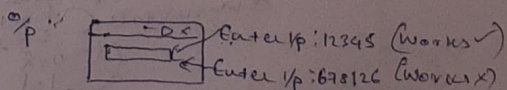 o/p :-
- □ ×
Enter i/p : 12345 (works ✓)
Enter i/p : 678126 (works ×)